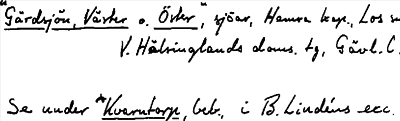 "Gärdsjön, Väster o. Öster", sjöar, Hamra kap., Los s
V. Hälsinglands doms. tg, Gävl. l.
Se under *Kvarntorp, beb., i B. Lindéns exc.